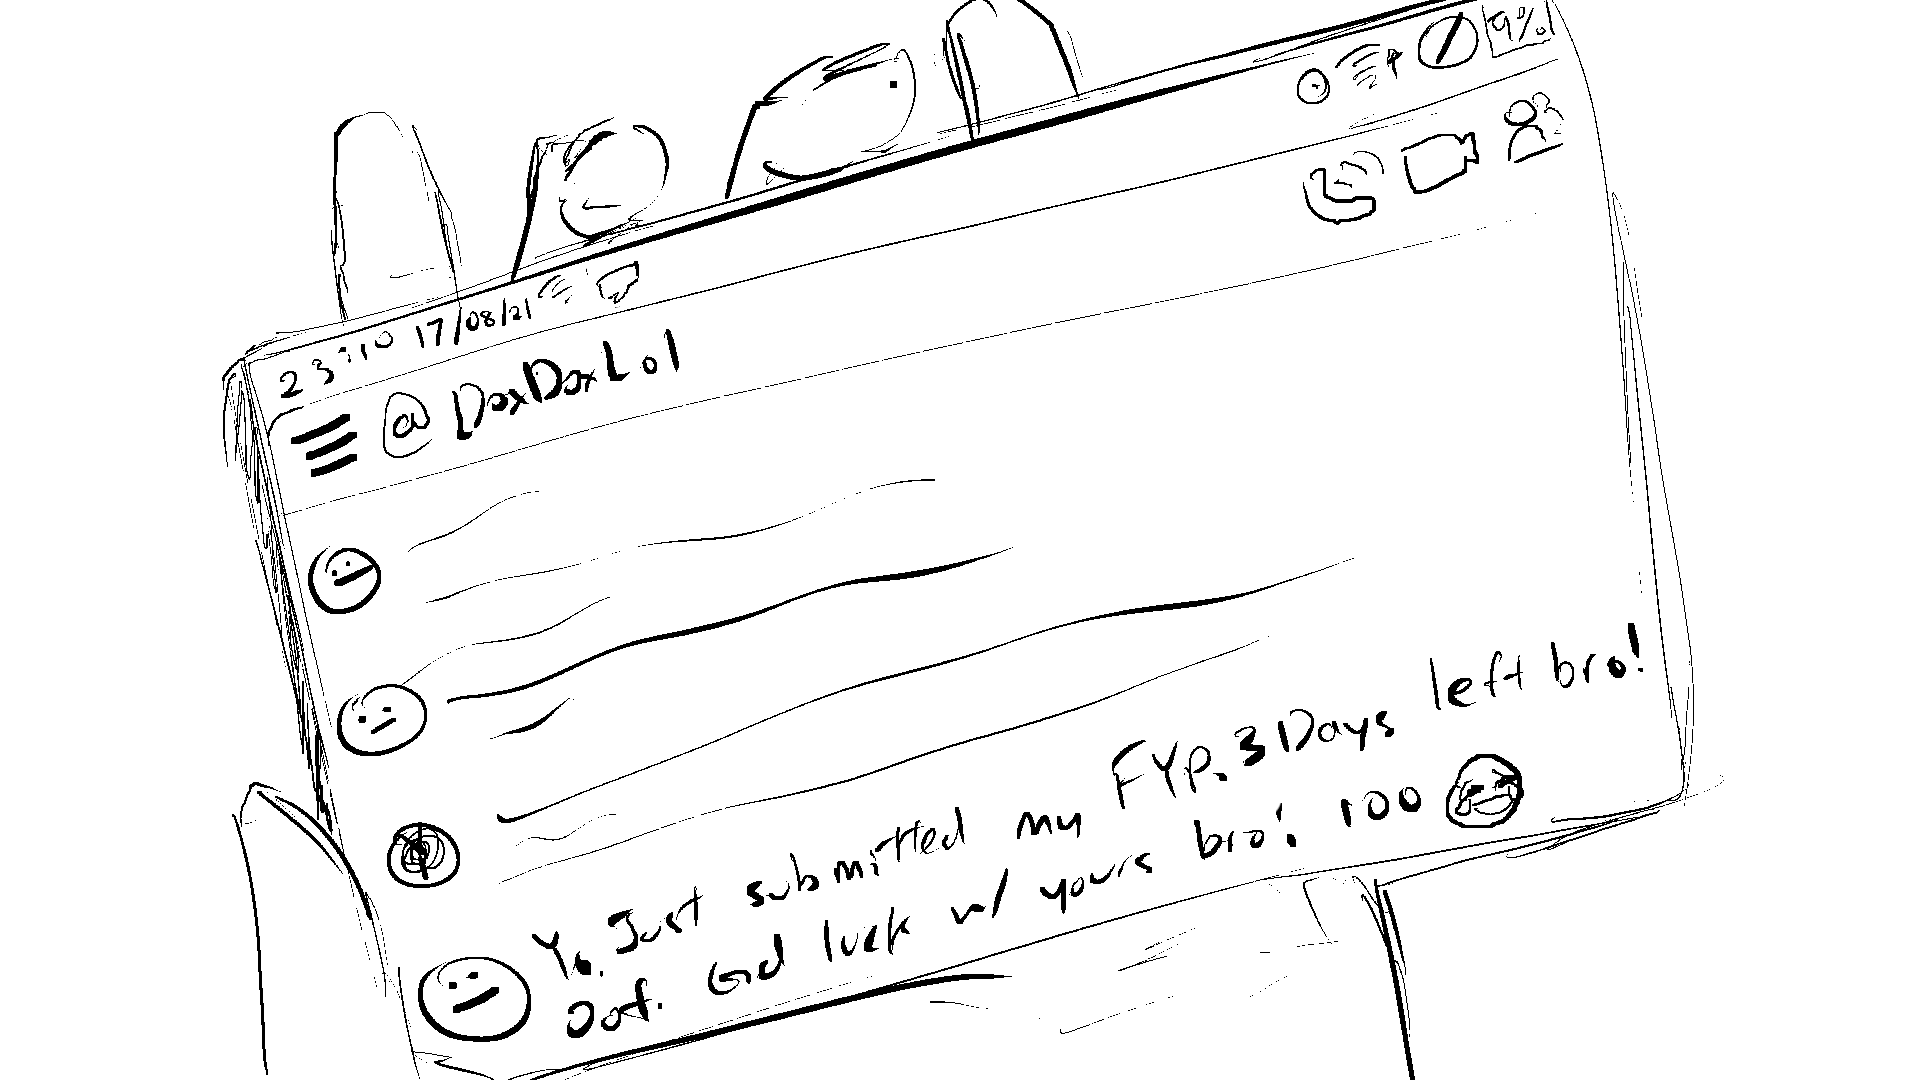 9%
23:10 17/08/21
@DoxDoxLol
Yo. Just submitted my FYP. 3 Days left bro!
Oof. Gud luck w/ yours bro! 100